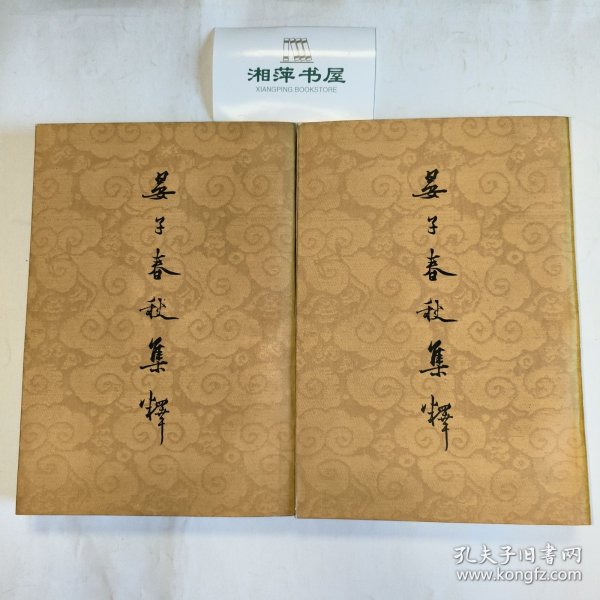 湘萍书屋
XIANGPING.BOOKSTORE
晏子春秋集釋
晏子春秋集釋
孔夫子旧书网
www.kongfz.com